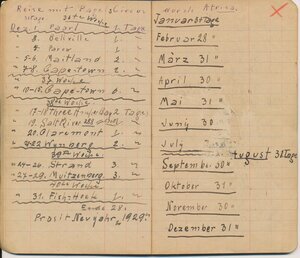 Reise mit Pagel Circus
36te Woche
Dez. 1. Paarl 1. Tage
" 3. Bellville 1. "
" 4. Parow 1. "
" 5-6. Maitland 2. "
" 7-8. Capetown 2. "
37 Woche
" 10-15. Capetown 6. "
38te Woche
" 17-18 Three Anchor Bay 2 Tage
" 19. Salt River 1. "
" 20. Claremont 1. "
" 21-22 Wynberg 2. "
39te Woche
" 24-26. Strand 3. "
" 27-29. Muizenberg 3. "
40te Woche
" 31. Fish-Hoek 1. "
Ende 28.
Prosit Neujahr 1929.
Africa.
Januar 31 Tage
Februar 28 "
März 31 "
April 30 "
Mai 31 "
Jung 30 "
July
August 31 Tage
September 30 "
Oktober 31 "
November 30 "
Dezember 31 "